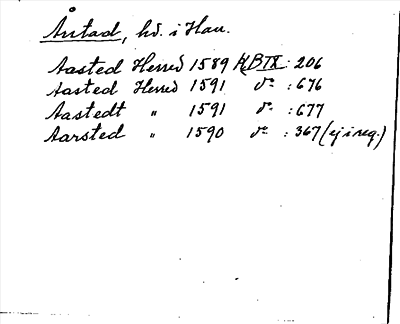 Årstad, hd. i Hall.
Aasted Herred 1589 KBIX : 206
Aasted Herred 1591 do : 676
Aastedt " 1591 do : 677
Aarsted " 1590 do : 367 (ej i reg.)